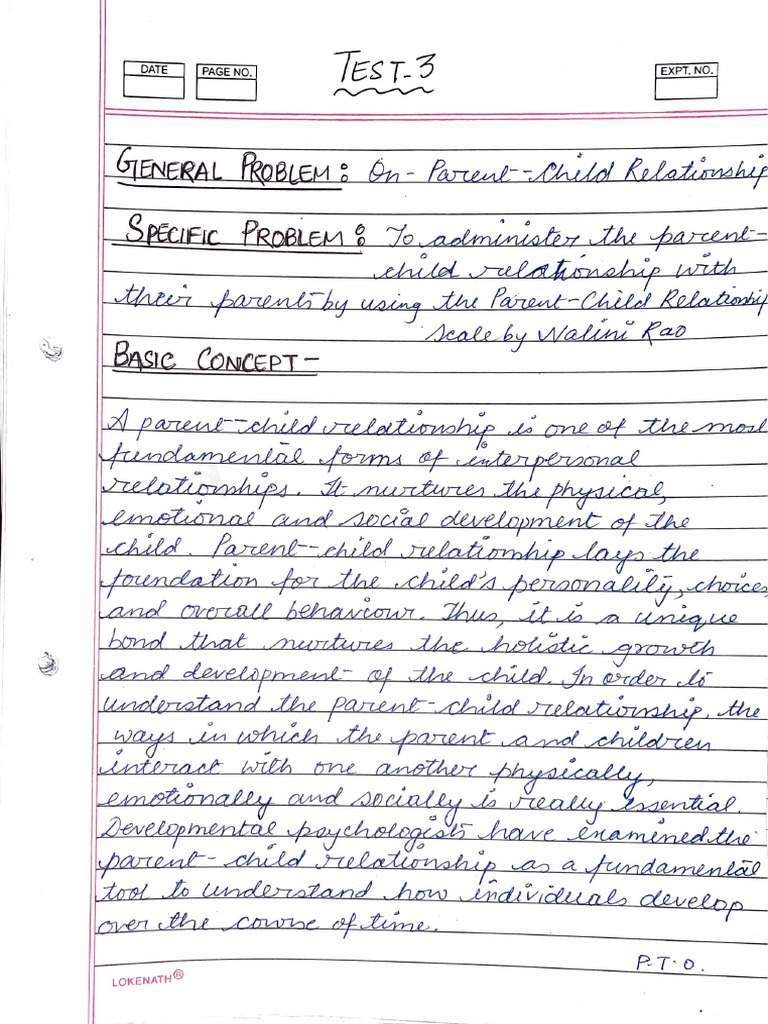 TEST-3
DATE
PAGE NO.
EXPT. NO.
GENERAL PROBLEM: On-Parent-Child Relationship
SPECIFIC PROBLEM: To administer the parent-
child relationship with
their parents by using the Parent-Child Relationship
Scale by Nalini Rao
BASIC CONCEPT-
A parent-child relationship is one of the most
fundamental forms of interpersonal
relationships. It nurtures the physical,
emotional and social development of the
child. Parent-child relationship lays the
foundation for the child's personality, choices
and overall behaviour. Thus, it is a unique
bond that nurtures the holistic growth
and development of the child. In order to
understand the parent-child relationship, the
ways in which the parent and children
interact with one another physically,
emotionally and socially is really essential.
Developmental psychologists have examined the
parent-child relationship as a fundamental
tool to understand how individuals develop
over the course of time.
P.T.O.
LOKENATH®